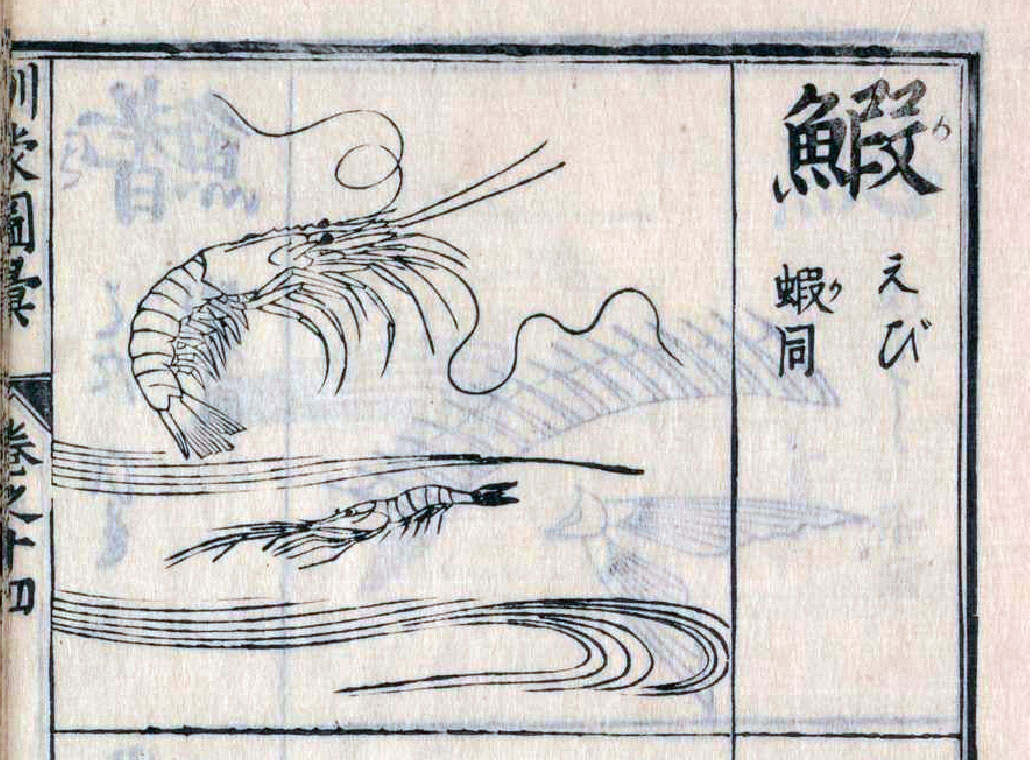 鰕
えび
蝦同
訓蒙圖彙
卷之十四